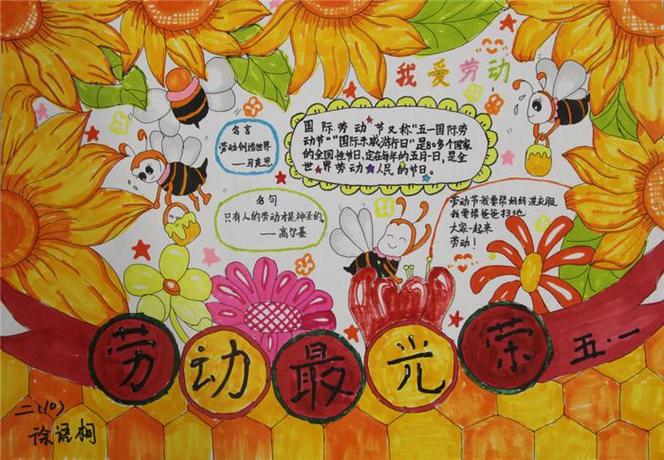 我爱劳动
名言
劳动创造世界
——马克思
国际劳动节又称"五一国际劳
动节""国际示威游行日"是80多个国家
的全国性节日,定在每年的五月一日,是全
世界劳动人民的节日。
名句
只有人的劳动才是神圣的。
——高尔基
劳动节我要帮妈妈洗衣服
我要帮爸爸扫地
大家一起来
劳动!
劳动最光荣
五·一
二(10)
涂语桐